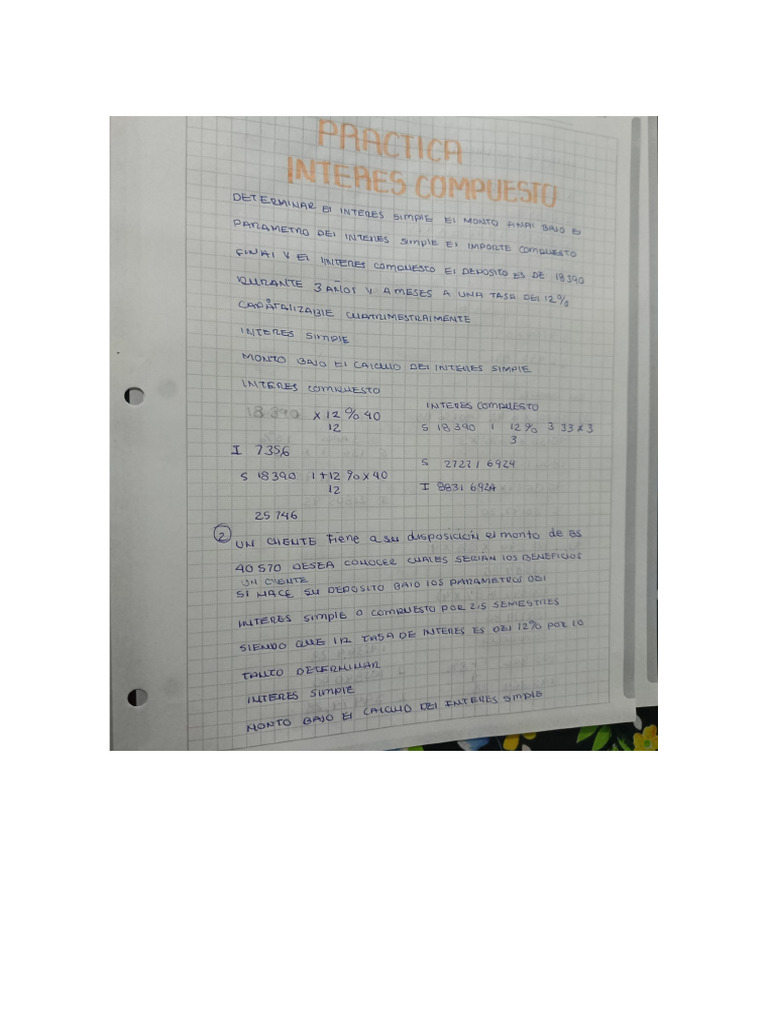 PRACTICA
INTERES COMPUESTO
DETERMINAR EL INTERES SIMPLE EL MONTO FINAL BAJO E
PARAMETRO DEL INTERES SIMPLE EL IMPORTE COMPUESTO
FINAL Y EL IINTERES COMPUESTO EL DEPOSITO ES DE 18390
DURANTE 3 AÑOS Y 4 MESES A UNA TASA DEL 12%
CAPATALIZABLE CUATRIMESTRALMENTE
INTERES SIMPLE
MONTO BAJO EL CALCULO DEL INTERES SIMPLE
INTERES COMPUESTO
18.390 x 12 % 40
12
I 7356
S 18390 1+12 % x 40
12
25 746
INTERES COMPUESTO
S 18 390 1 12% 3 33 x 3
3
S 27221 6924
I 8831 6924
2 UN CLIENTE tiene a su disposición el monto de BS
40 570 DESEA CONOCER CUALES SERIAN LOS BENEFICIOS
UN CLIENTE
SI HACE SU DEPOSITO BAJO LOS PARAMETROS DEL
INTERES SIMPLE O COMPUESTO POR 2.5 SEMESTRES
SIENDO QUE LA TASA DE INTERES ES DEL 12% POR LO
TANTO DETERMINAR
INTERES SIMPLE
MONTO BAJO EL CALCULO DEL INTERES SIMPLE